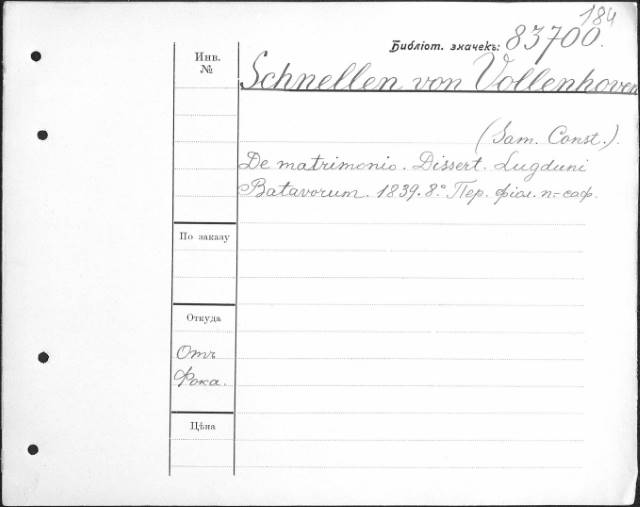 184
Библіот. значекъ: 83700.
Инв.
№
Schnellen von Vollenhoven
(Sam. Const.).
De matrimonio. Dissert. Lugduni
Batavorum. 1839. 8.° Пер. фіол. п.-саф.
По заказу
Откуда
Отъ
Фока.
Цѣна